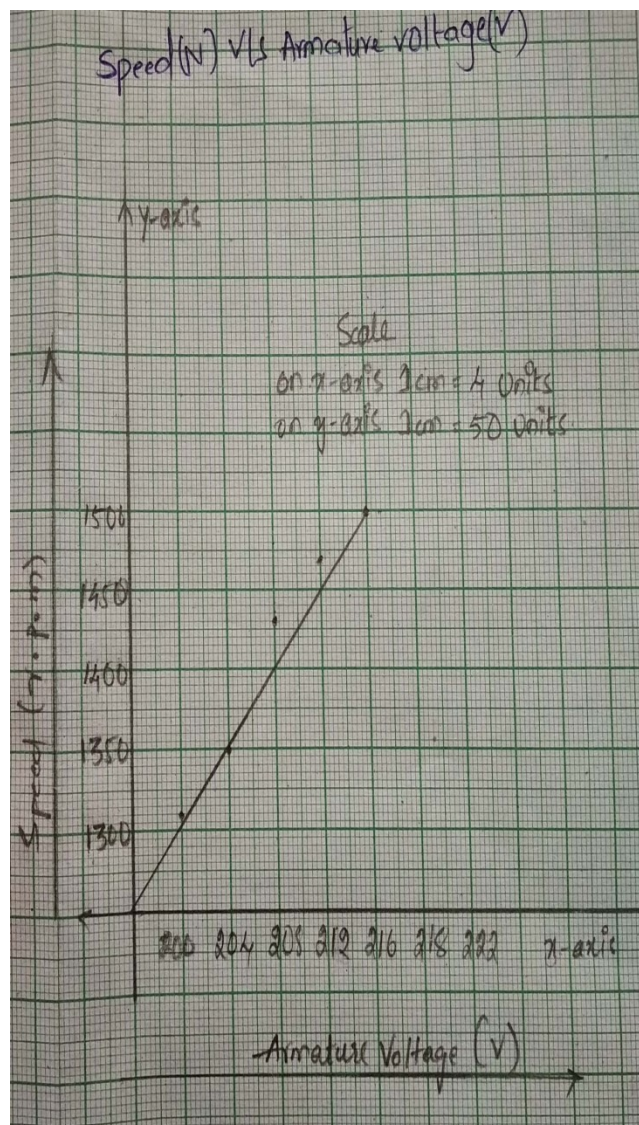 Speed(N) V/s Armature voltage(V)
y-axis
Scale
on x-axis 1cm = 4 Units
on y-axis 1cm = 50 units
1500
1450
1400
1350
1300
Speed (r.p.m)
200 204 208 212 216 218 222 x-axis
Armature Voltage (V)